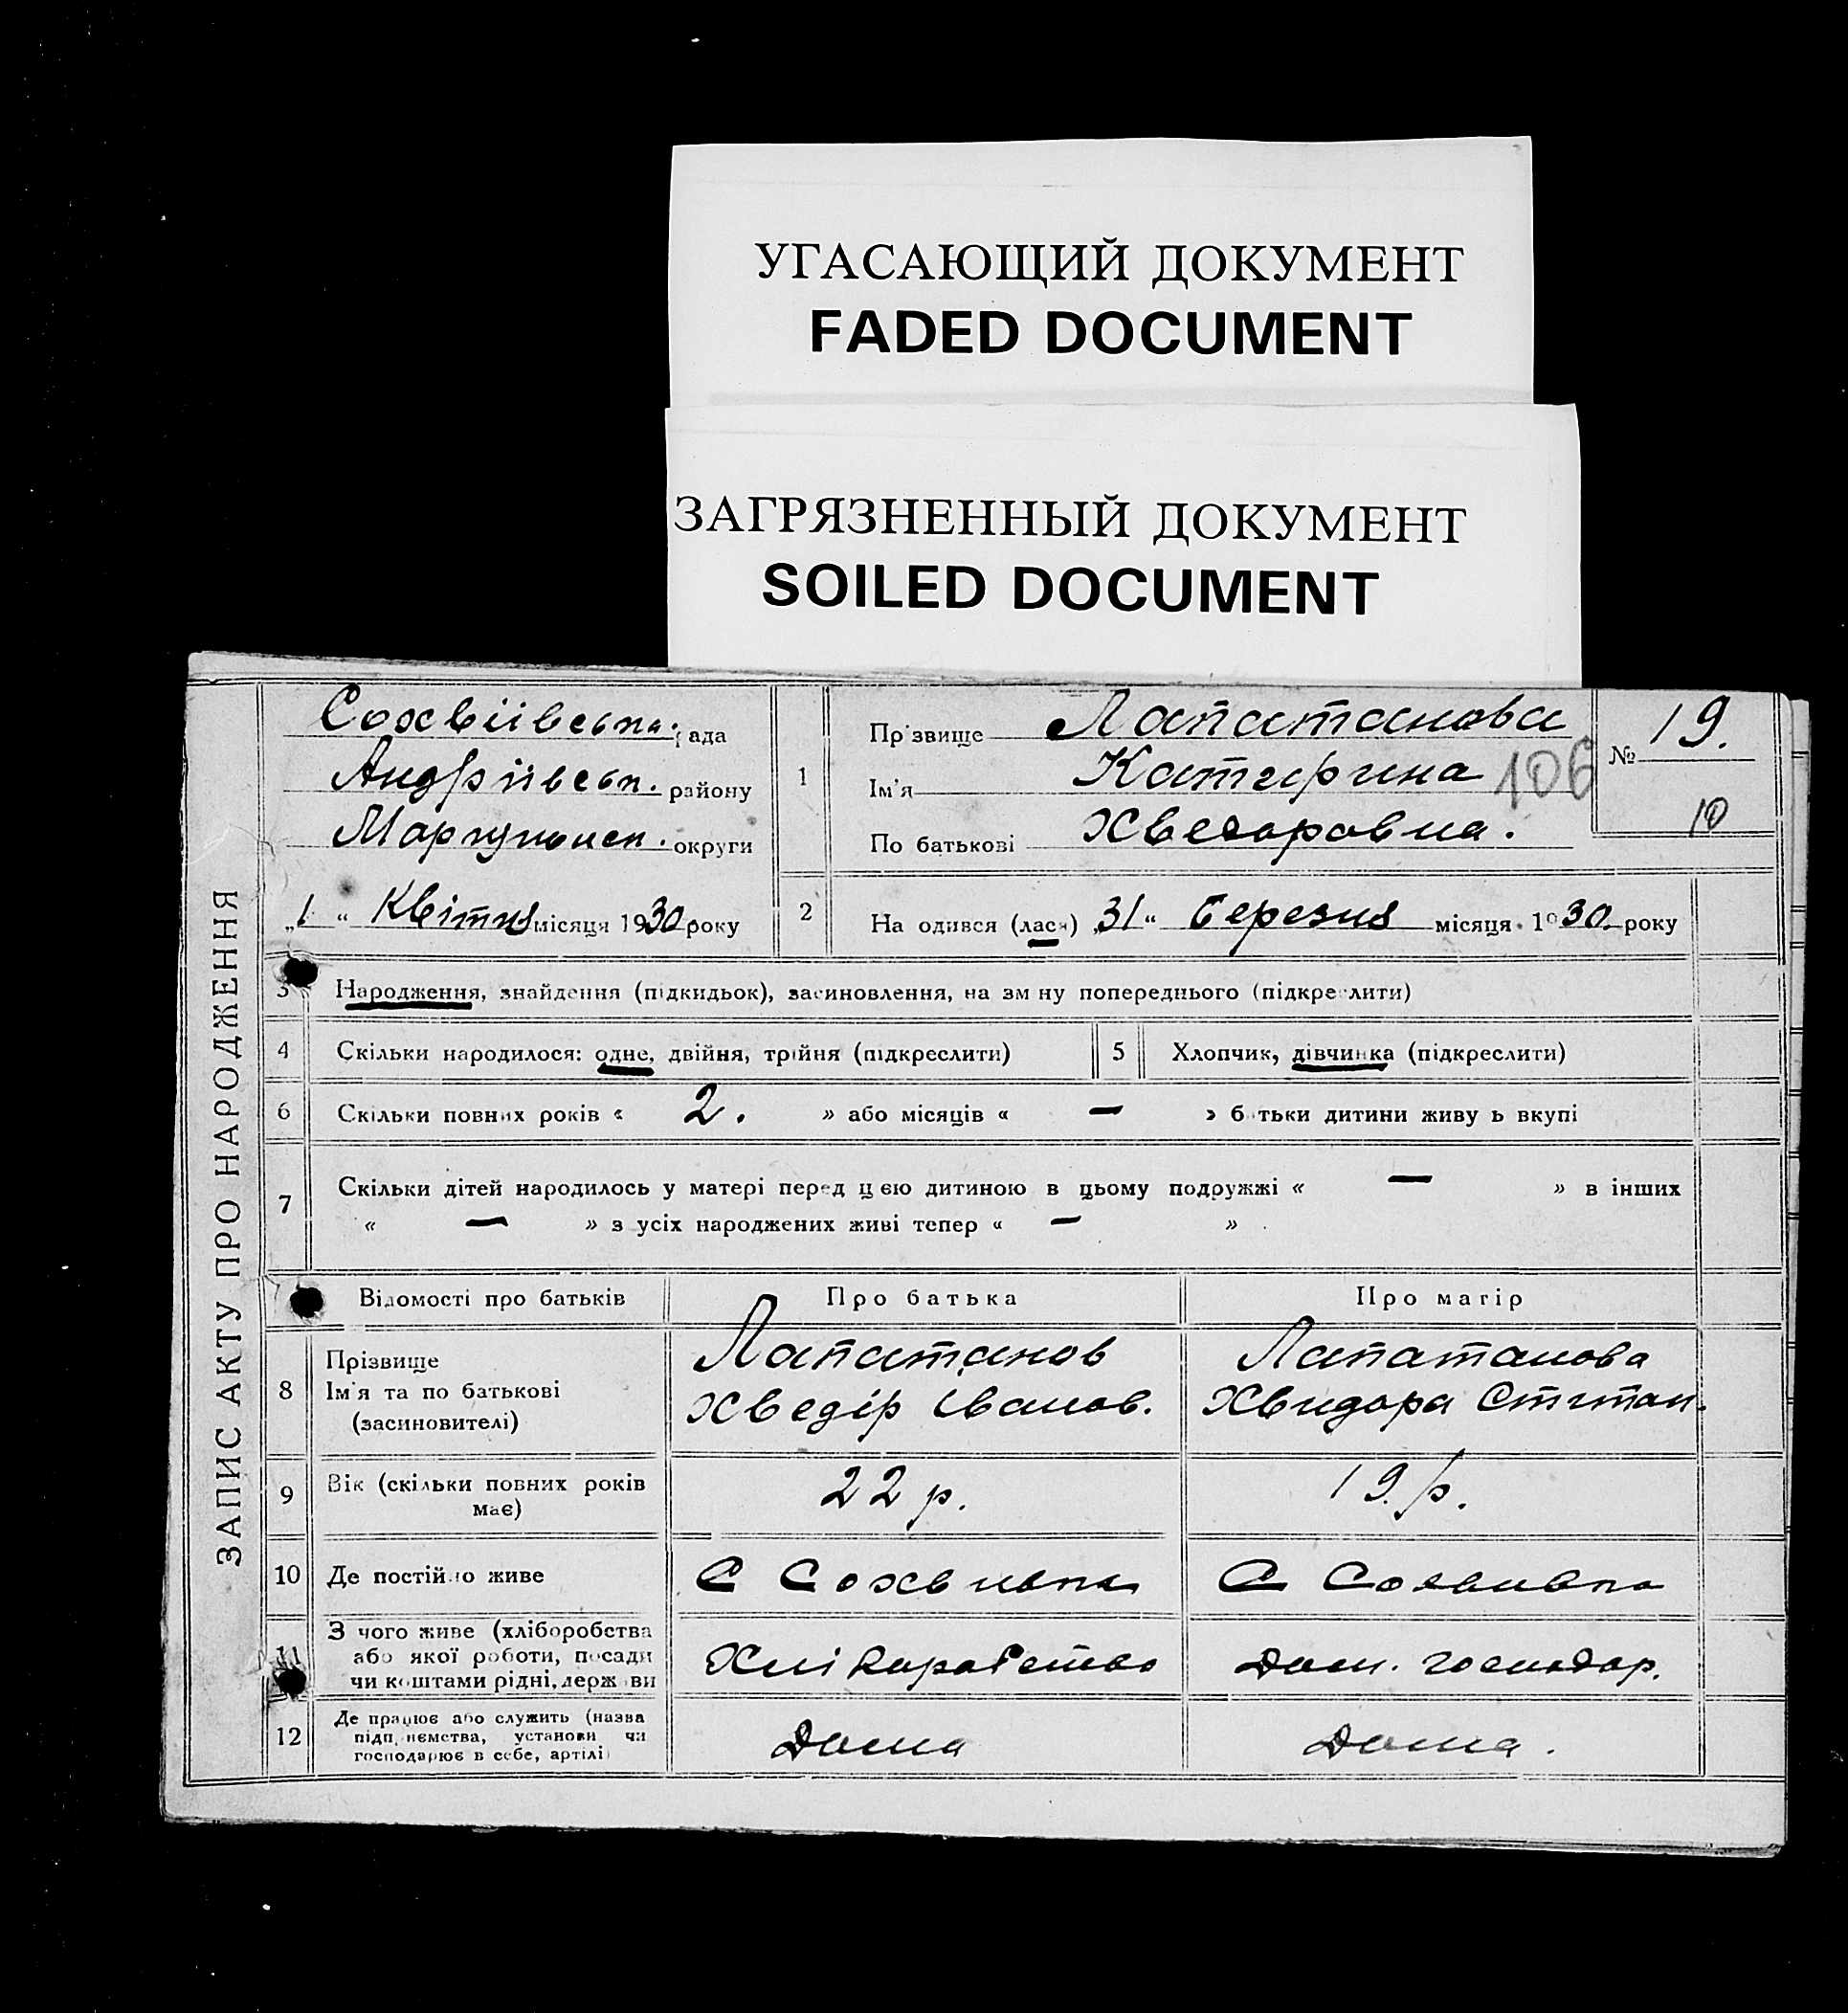 УГАСАЮЩИЙ ДОКУМЕНТ
FADED DOCUMENT
ЗАГРЯЗНЕННЫЙ ДОКУМЕНТ
SOILED DOCUMENT
ЗАПИС АКТУ ПРО НАРОДЖЕННЯ
Сохвіївська рада
Андріївськ. району
Маріупольськ. округи
„1“ Квітня місяця 1930 року
1
Прізвище Лапатанова
Ім'я Катерина 106
По батькові Хведоровна.
№ 19.
10
2 На одився (лася) „31“ Березня місяця 1930. року
3 Народження, знайдення (підкидьок), засиновлення, на зміну попереднього (підкреслити)
4 Скільки народилося: одне, двійня, трійня (підкреслити) 5 Хлопчик, дівчинка (підкреслити)
6 Скільки повних років « 2. » або місяців « — » батьки дитини живуть вкупі
7 Скільки дітей народилось у матері перед цією дитиною в цьому подружжі « — » в інших
« — » з усіх народжених живі тепер « — » .
Відомості про батьків Про батька Про матір
8 Прізвище
Ім'я та по батькові
(засиновителі)
Лапатанов
Хведір Іванов.
Лапатанова
Хвидора Степан.
9 Вік (скільки повних років
має)
22 р.
19 р.
10 Де постійно живе С Сохвивка С Сохвивка
11 З чого живе (хліборобства
або якої роботи, посади
чи коштами рідні, держави
Хліборобство
Дом. господар.
12 Де працює або служить (назва
підприємства, установи чи
господарює в себе, артілі)
Дома
Дома.